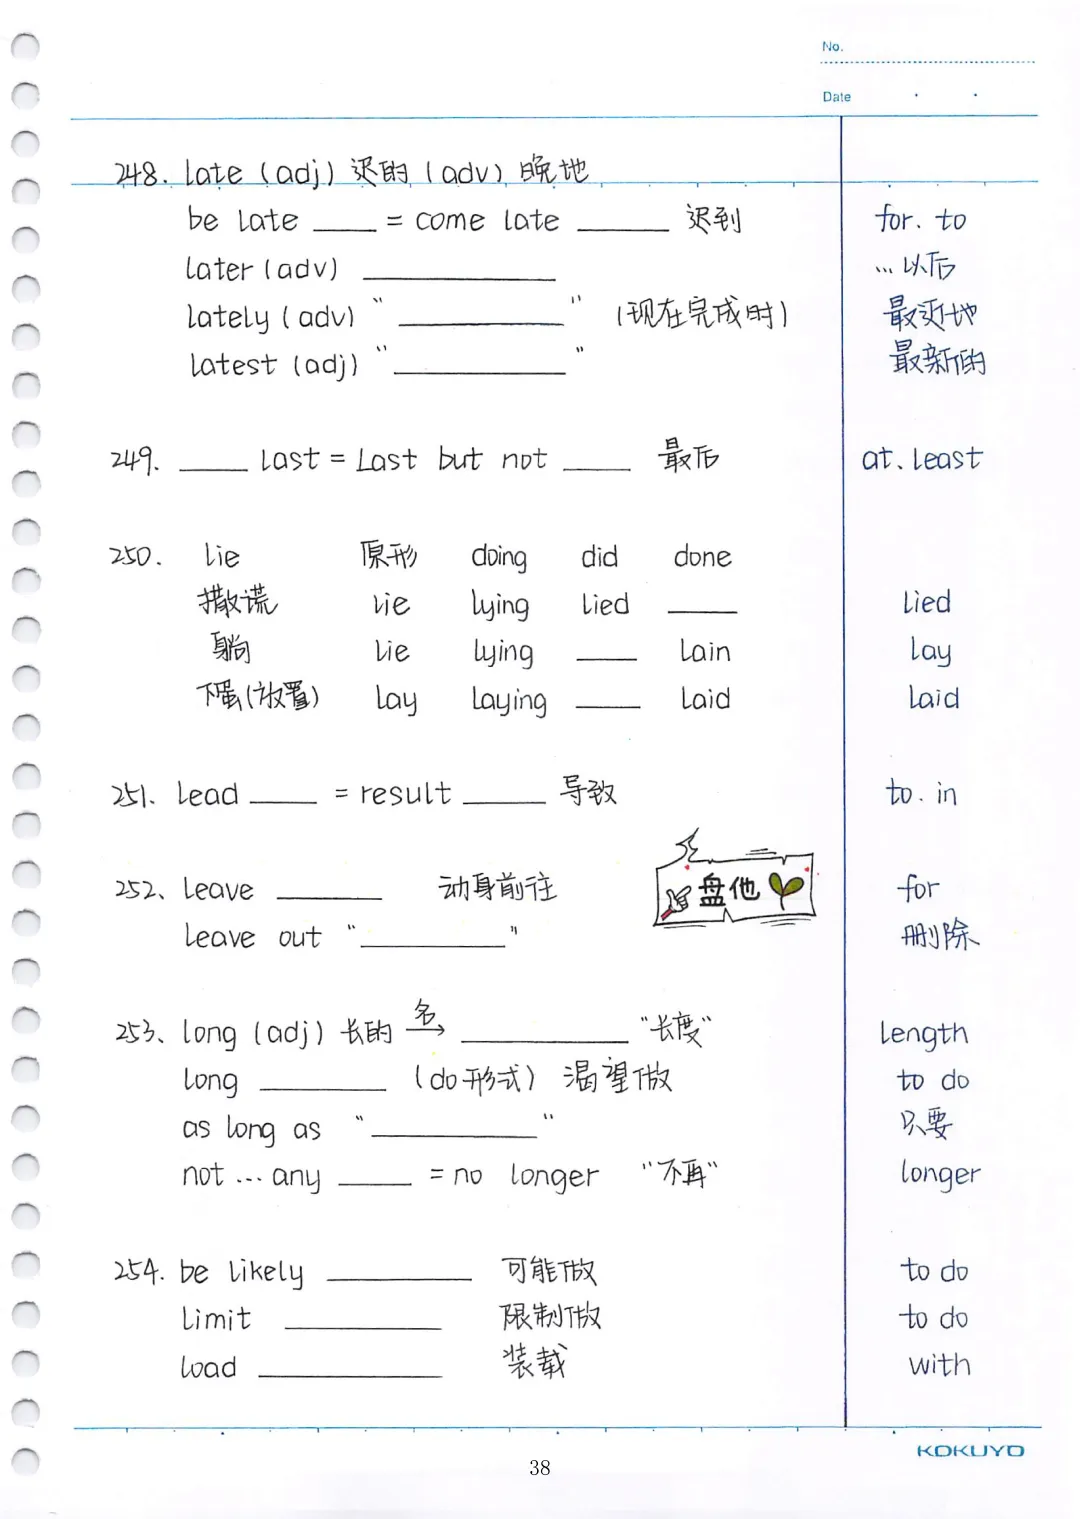 No.
Date
248. late (adj) 迟的 (adv) 晚地
be late ____ = come late ______ 迟到 for. to
later (adv) ____________ ...以后
lately (adv) "__________" (现在完成时) 最近地
latest (adj) "__________" 最新的
249. ____ last = Last but not ____ 最后 at、least
250. lie 原形 doing did done
撒谎 lie lying lied ____ lied
躺 lie lying ____ lain lay
下蛋(放置) lay laying ____ laid laid
251. lead ____ = result _____ 导致 to. in
252、leave ______ 动身前往 for
盘他
leave out "________" 删除
253、long (adj) 长的 名→ __________ "长度" length
long ________ (do形式) 渴望做 to do
as long as "__________" 只要
not ... any ____ = no longer "不再" longer
254. be likely _________ 可能做 to do
limit _________ 限制做 to do
load ___________ 装载 with
KOKUYO
38